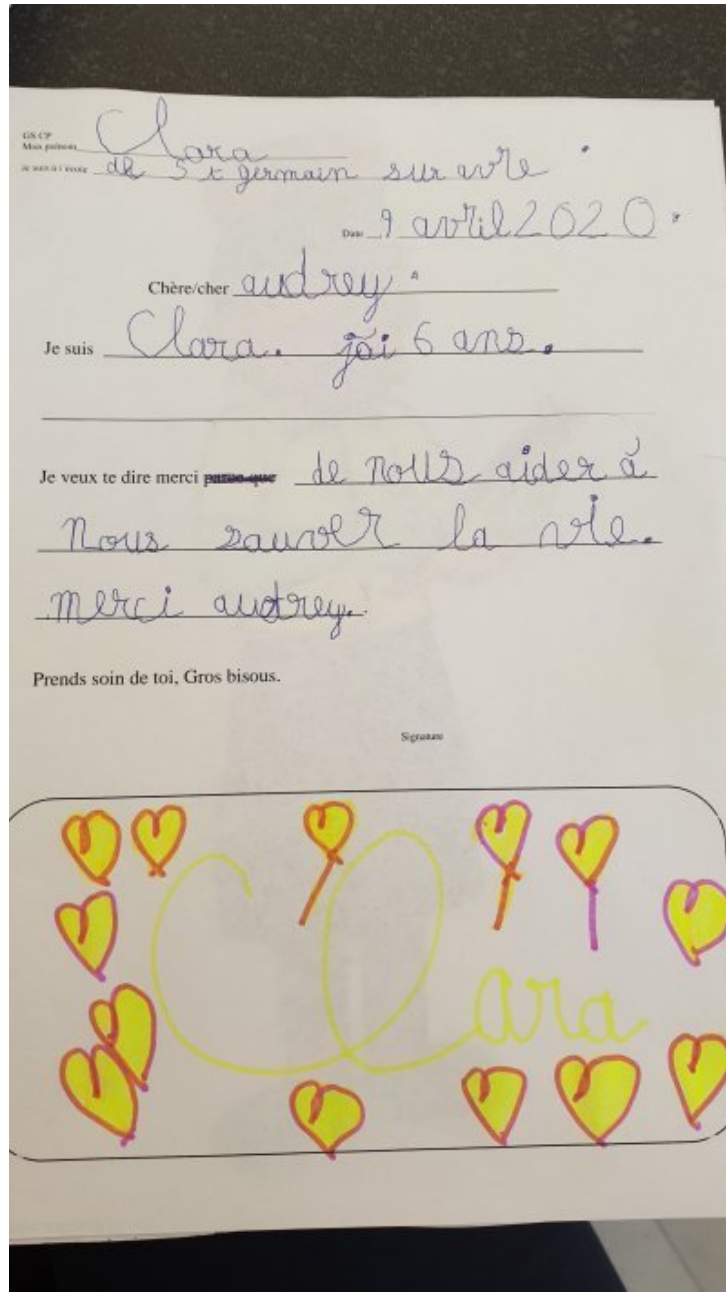 GS CP
Mon prénom Clara
Je suis à l'école de St germain sur avre
Date 9 avril 2020.
Chère/cher audrey.
Je suis Clara. j'ai 6 ans.
Je veux te dire merci parce que de nous aider à
nous sauver la vie.
merci audrey.
Prends soin de toi, Gros bisous.
Signature
Clara